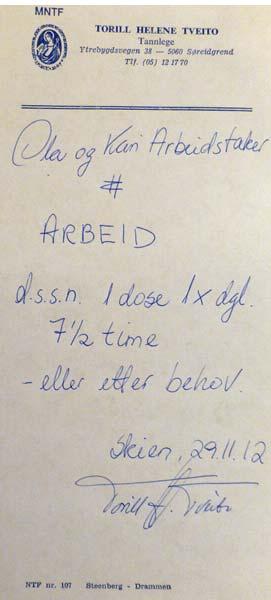 MNTF
TORILL HELENE TVEITO
Tannlege
Ytrebygdsvegen 38 — 5060 Søreidgrend
Tlf. (05) 12 17 70
Ola og Kari Arbeidstaker
#
ARBEID
d.s.s.n. 1 dose 1x dgl.
7 1/2 time
- eller etter behov.
Skien, 29.11.12
Torill H. Tveito
NTF nr. 107 Steenberg - Drammen